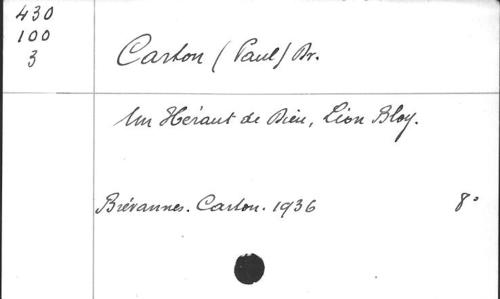 430
100
3
Carton (Paul) Dr.
Un Héraut de Dieu, Léon Bloy.
Brévannes. Carton. 1936
8°